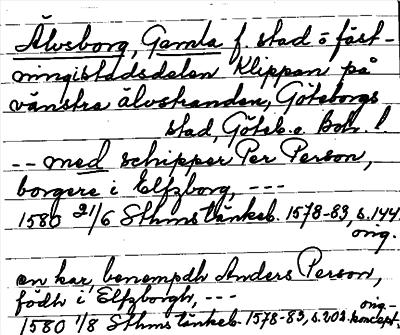 Älvsborg, Gamla f. stad o fäst-
ning i stadsdelen Klippan på
vänstra älvstranden, Göteborgs
stad, Göteb. o Boh. l.
-- med schipper Per Person,
borgere i Elfzborg, ---
1580 21/6 Sthms tänkeb. 1578-83, s. 144
orig.
en kar, benempdh Anders Person,
födh i Elfzborgh, ---
1580 1/8 Sthms tänkeb. 1578-83, s. 203 orig.-
koncept.